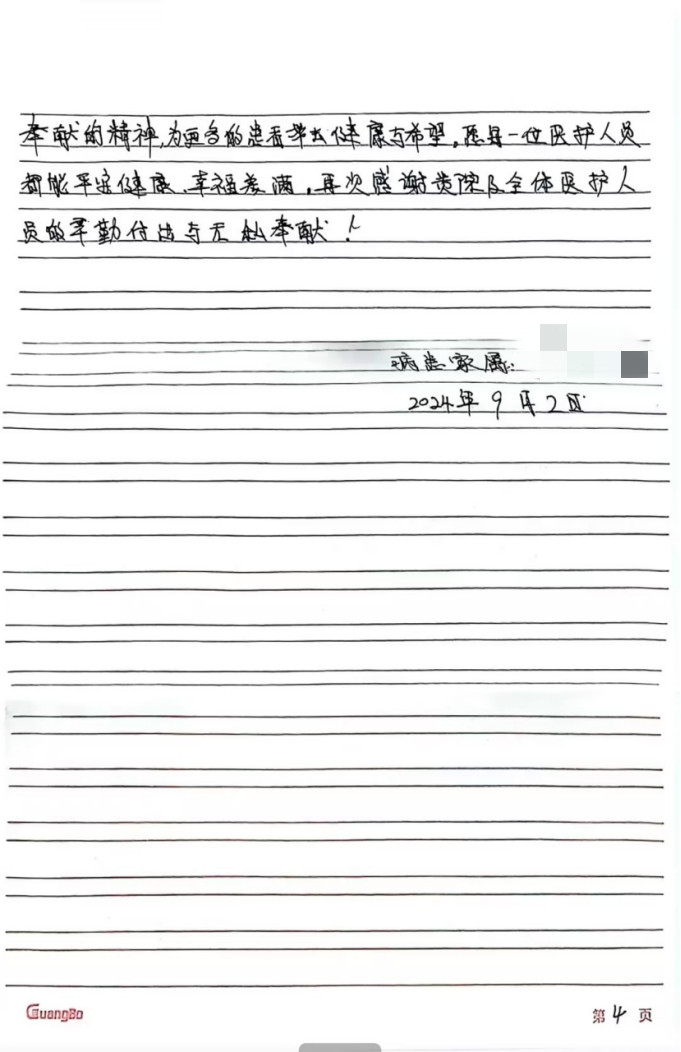 奉献的精神,为更多的患者带去健康与希望。愿每一位医护人员
都能平安健康、幸福美满。再次感谢贵院及全体医护人
员的辛勤付出与无私奉献!
病患家属:
2024年9月2日
GuangBo
第4页